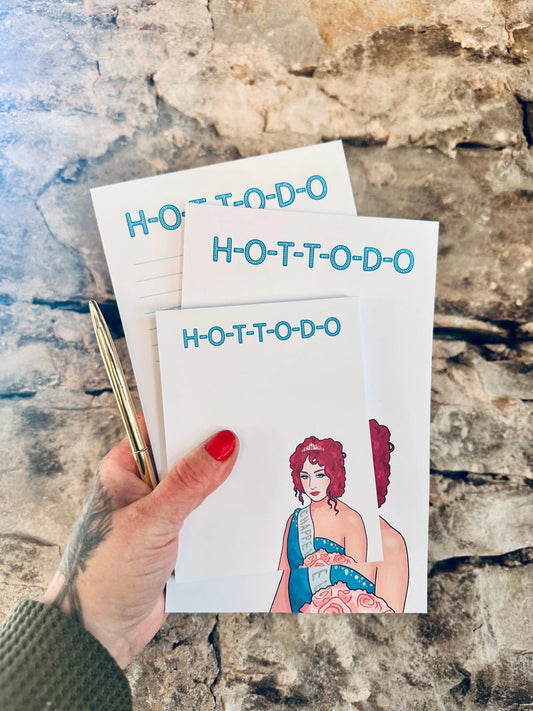 H-O-T-T-O-D-O
H-O-T-T-O-D-O
H-O-T-T-O-D-O